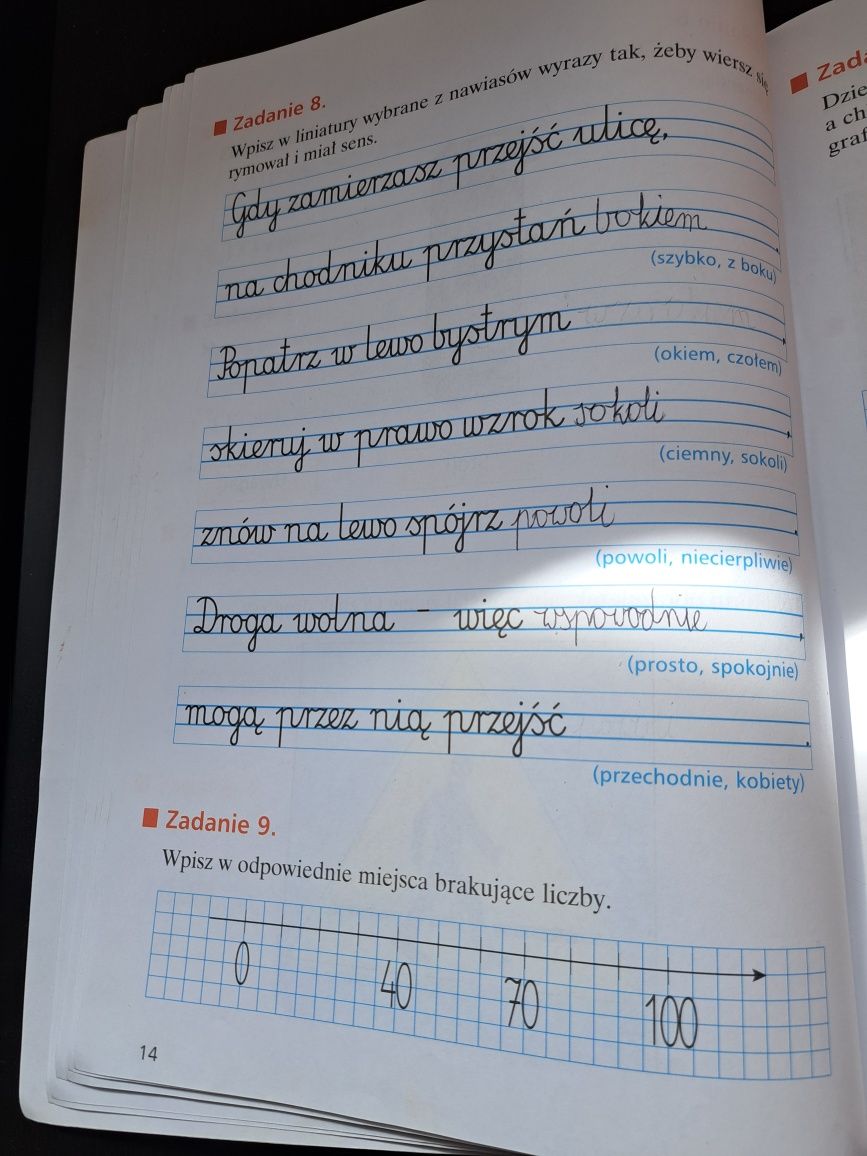 Zadanie 8.
Wpisz w liniatury wybrane z nawiasów wyrazy tak, żeby wiersz się
rymował i miał sens.
Gdy zamierzasz przejść ulicę,
na chodniku przystań bokiem
(szybko, z boku)
Popatrz w lewo bystrym
(okiem, czołem)
skieruj w prawo wzrok sokoli
(ciemny, sokoli)
znów na lewo spójrz powoli
(powoli, niecierpliwie)
Droga wolna – więc
(prosto, spokojnie)
mogą przez nią przejść
(przechodnie, kobiety)
Zadanie 9.
Wpisz w odpowiednie miejsca brakujące liczby.
0 40 70 100
14
Dzie
a ch
graf